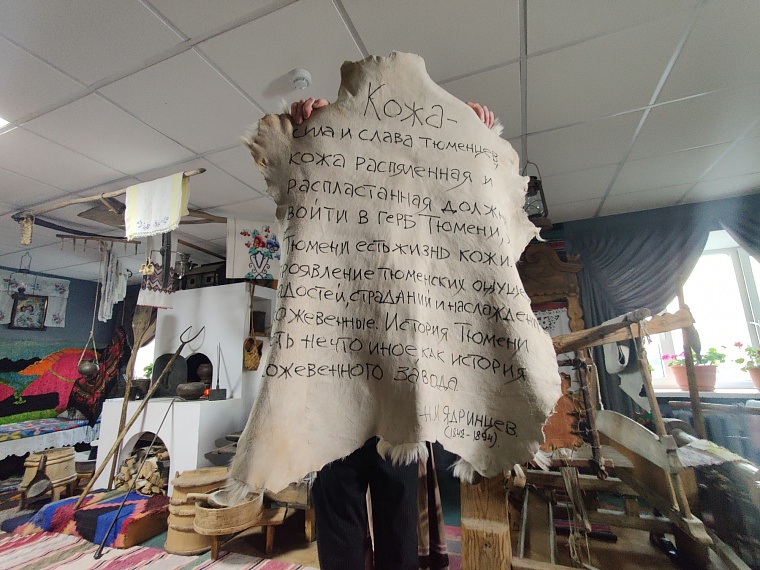 Кожа-
сила и слава тюменцев,
кожа распяленная и
распластанная должн
войти в герб Тюмени,
Тюмени есть жизнь кожи
роявление тюменских ощуще
адостей, страданий и наслажден
ожевенные. История Тюмени
ть нечто иное как история
ожевенного завода
Н.И. Ядринцев.
(1842-1894)